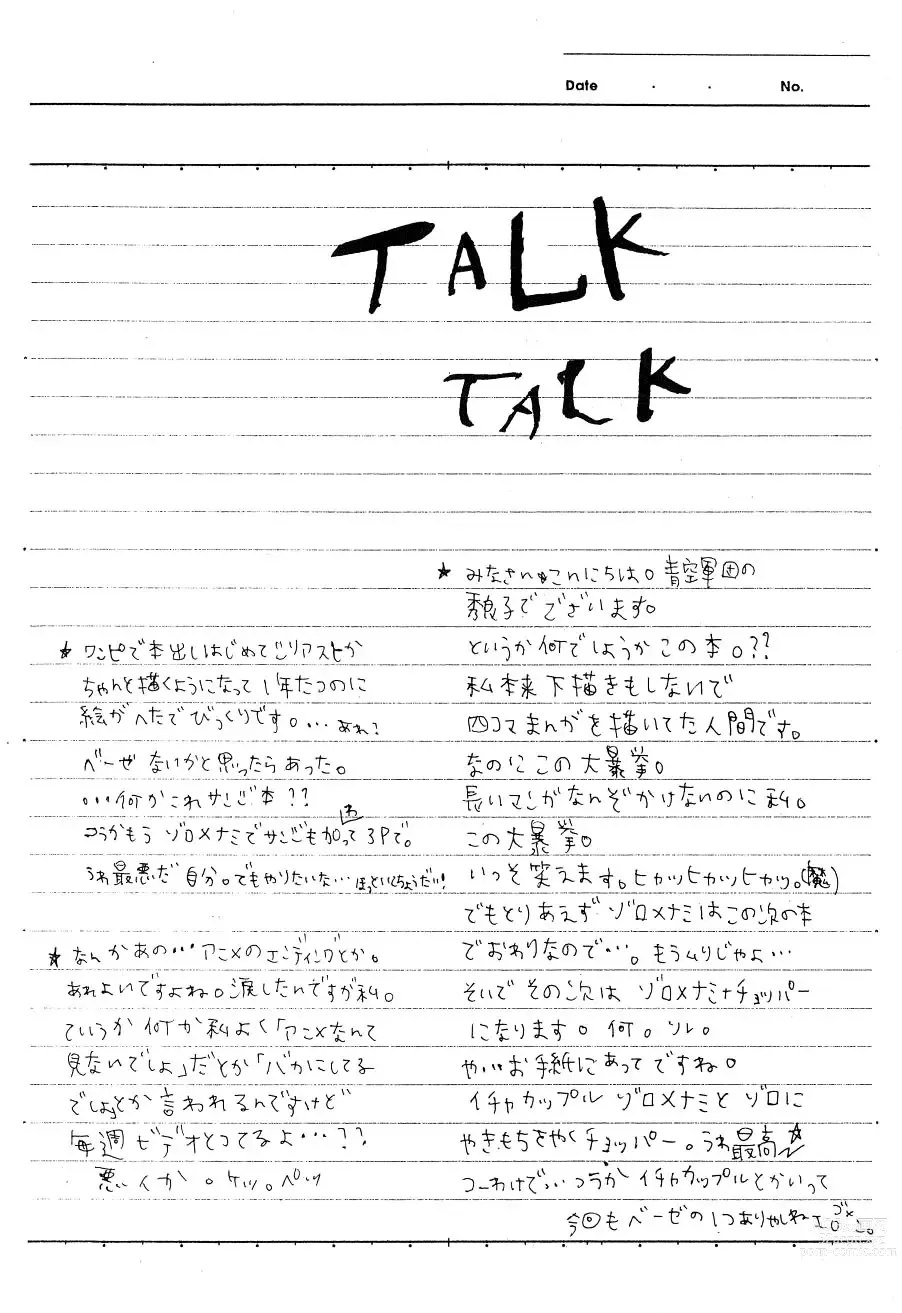 Date ・ ・ No.
TALK
TALK
★ みなさんこんにちは。青空軍団の
秀良子でございます。
というか何でしょうかこの本。??
私本来下描きもしないで
四コマまんがを描いてた人間です。
なのにこの大暴挙。
長いマンガなんぞかけないのに私。
この大暴挙。
いっそ笑えます。ヒカッヒカッヒカッ。(魔)
でもとりあえずゾロメナミはこの次の本
でおわりなので…。もうムリじゃよ…
そいでその次はゾロメナミ+チョッパー
になります。何。ソレ。
やおお手紙にあってですね。
イチャカップルゾロメナミとゾロに
やきもちをやくチョッパー。うわ最高
つーわけで つうか イチャカップルとかいって
今回もベーゼの1つありゃしねェ
★ ワンピで本出しはじめてじりアスとか
ちゃんと描くようになって1年たつのに
絵がへたでびっくりです。…あれ?
ベーゼないかと思ったらあった。
…何かこれサンジ本??
つうかもうゾロメナミでサンジも加わって3Pで。
うわ最悪だ自分。でもやりたいな…ほっといてちょうだい!
★ なんかあの…アニメのエンディングとか。
あれよいですよね。涙したんですが私。
ていうか何か私よく「アニメなんて
見ないでしょ」だとか「バカにしてる
でしょ」とか言われるんですけど
毎週ビデオとってるよ…??
悪いか。ケッ。ペッ